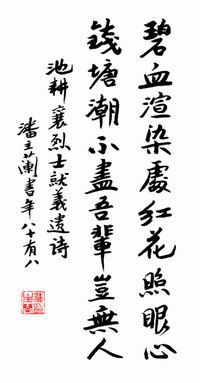 碧血渲染處紅花照眼心
錢塘潮不盡吾輩豈無人
池耕襄烈士就義遺詩
潘主蘭書年八十有八